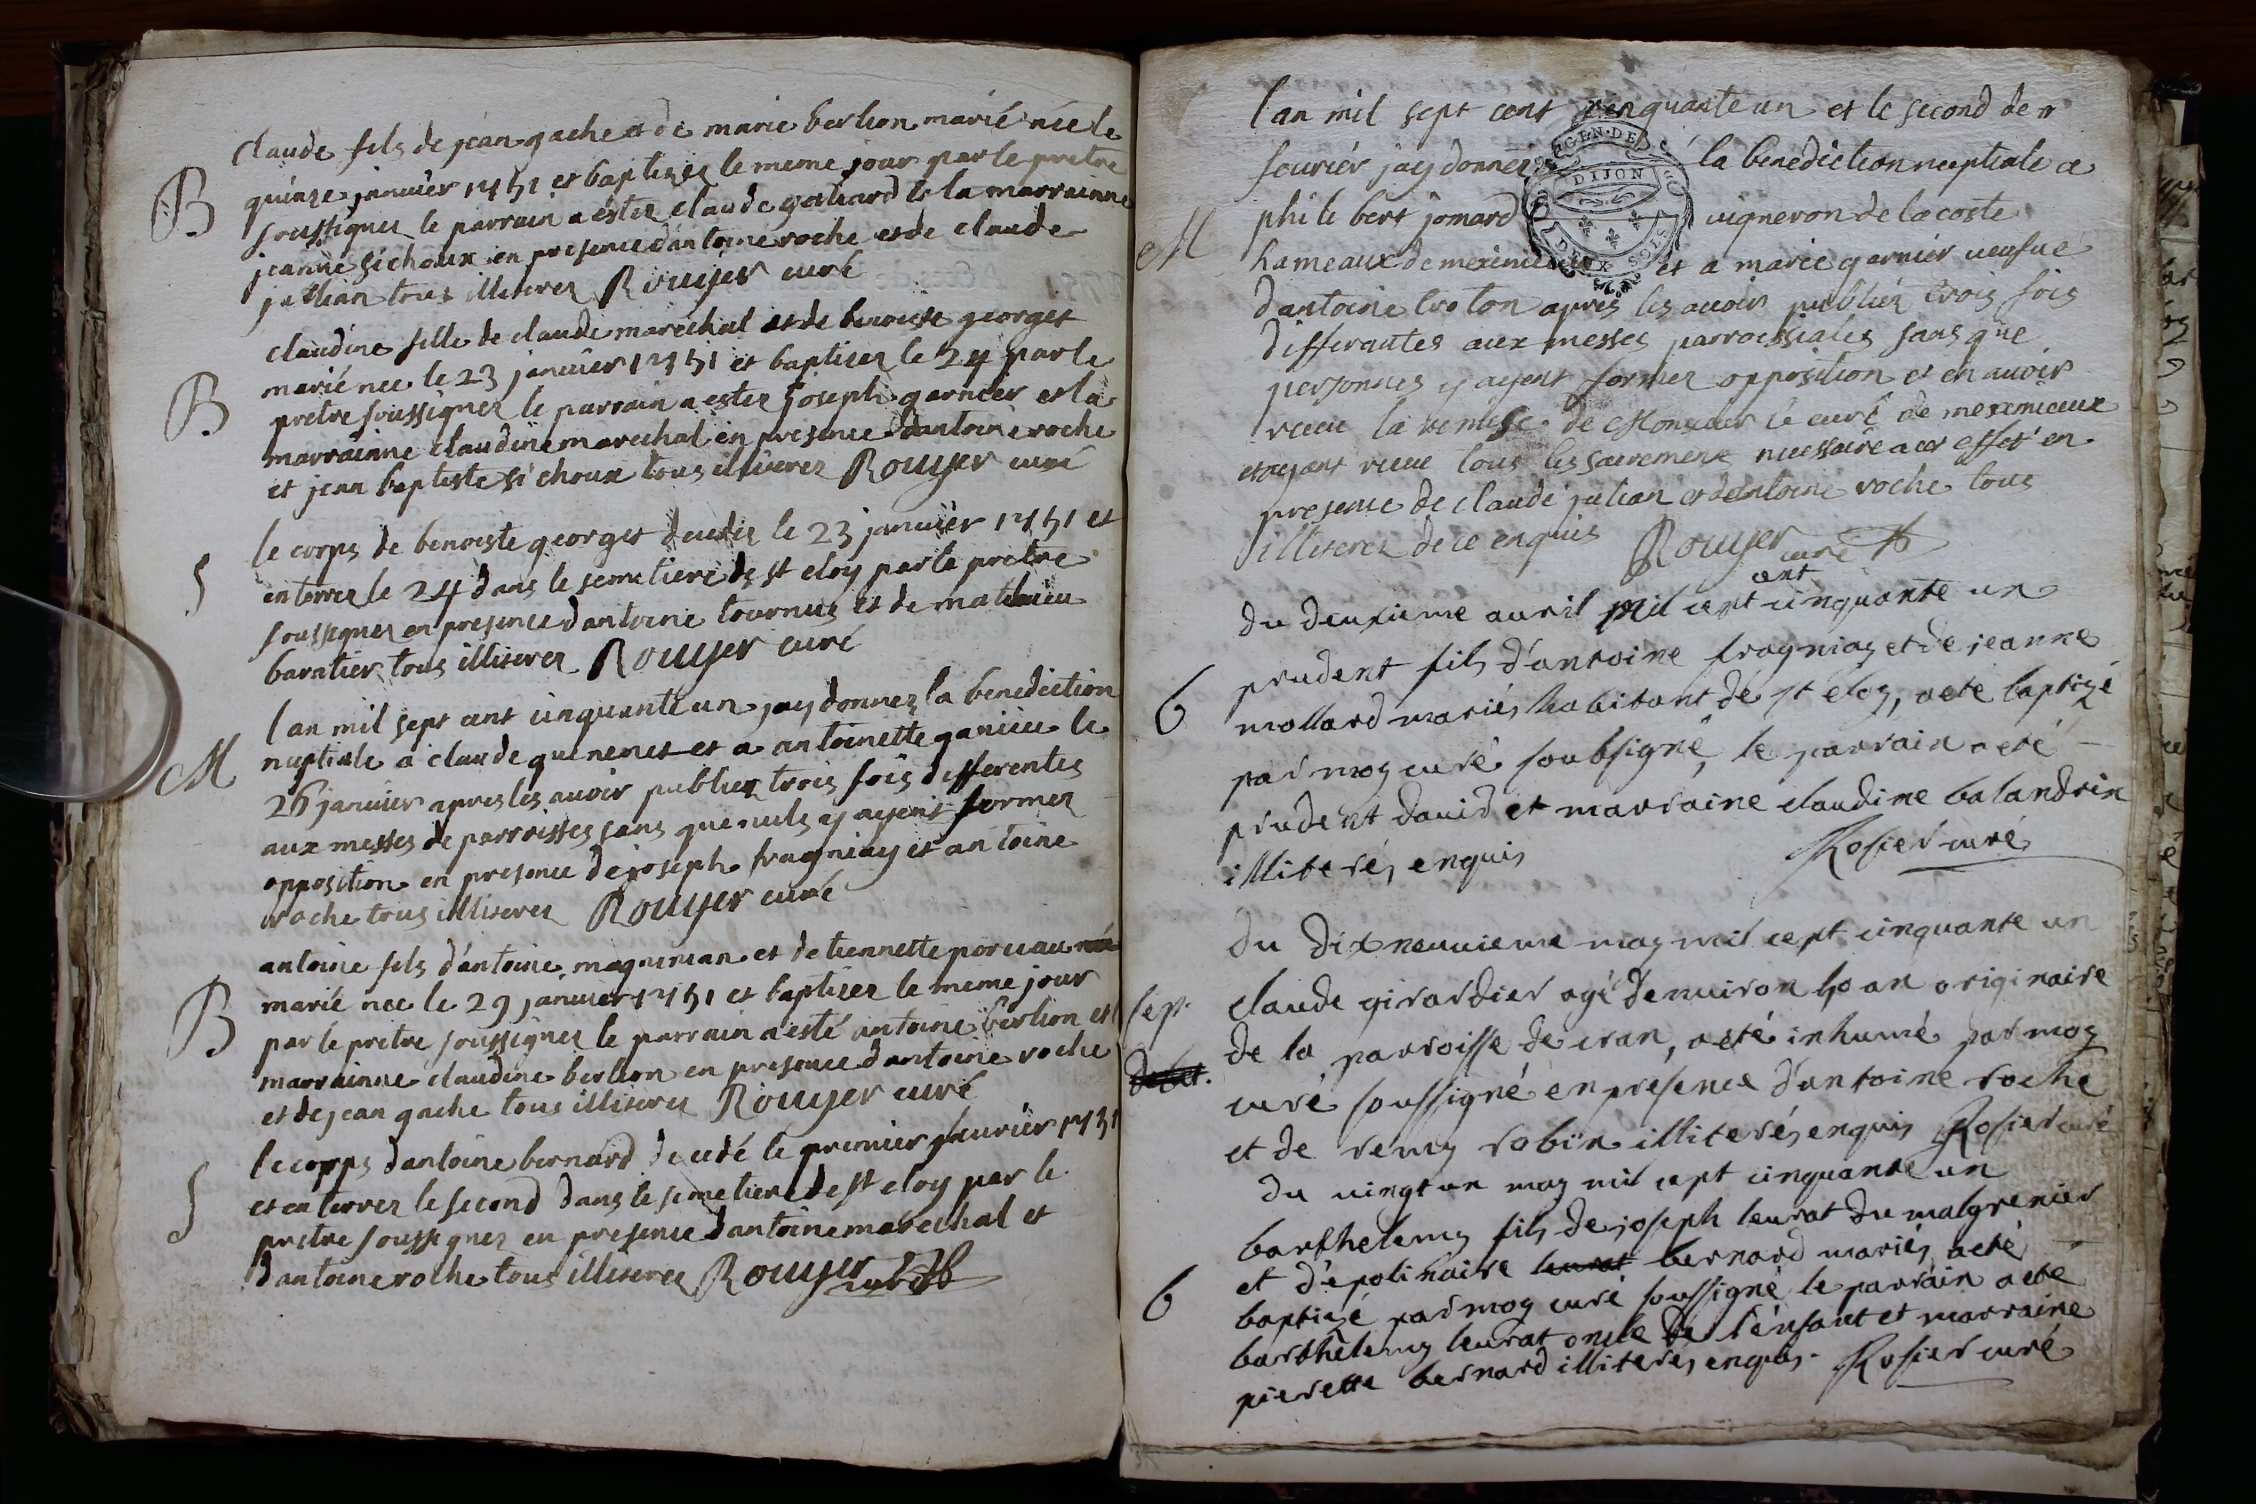 claude fils de jean gache et de marie berlion marié née le
B quinze janvier 1751 et baptisez le meme jour par le pretre
soussignez le parrain a estez claude gothard et la marrainne
jeanne sichoux en presence dantoine roche et de claude
jullian tous illiterez Rouyer curé
claudine fille de claude marechal et de benoiste georget
marié nee le 23 janvier 1751 et baptisez le 24 par le
B pretre soussignez le parrain a estez joseph garnier et la
marrainne claudine marechal en presence dantoine roche
et jean baptiste sichoux tous illiterez Rouyer curé
le corps de benoiste georget decedez le 23 janvier 1751 et
S enterrez le 24 dans le semetiere de st eloy par le pretre
soussignez en presence dantoine tournus et de mathieu
baratier tous illiterez Rouyer curé
lan mil sept cent cinquante un jay donnez la benediction
M nuptiale a claude quinenet et a antoinette
26 janvier apres les avoir publiez trois fois differentes
aux messes de parroisses sans que nuls y ayent formez
opposition en presence de joseph fragniay et antoine
roche tous illiterez Rouyer curé
antoine fils d'antoine magnenan et de tiennette
B marié nee le 29 janvier 1751 et baptisez le meme jour
par le pretre soussignez le parrain a esté antoine berlion et
marrainne claudine berlion en presence dantoine roche
et de jean gache tous illiterez Rouyer curé
le corps dantoine bernard decedé le premier feurier 1751
S et enterrez le second dans le semetiere de st eloy par le
pretre soussignez en presence dantoine marechal et
dantoine roche tous illiterez Rouyer curé
lan mil sept cent cinquante un et le second de
feurier jay donnez la benediction nuptiale a
GEN. DE
DIJON
DEUX SOLS
M philibert jomard vigneron de la coste
hameaux de meximieux et a marie garnier veufve
dantoine croton apres les avoir publiez trois fois
differantes aux messes parroissiales sans que
personnes y ayent formez opposition et en avoir
receu la remise de Monsieur le curé de meximieux
et ayant receu tous les sacrement necessaire a cet effet en
presence de claude julian et dantoine roche tous
illiterez de ce enquis Rouyer curé
du deuxieme auril mil cept cent cinquante un
b prudent fils d'antoine fragniay et de jeanne
mollard mariés habitant de st eloy, a eté baptizé
par moy curé soubsigné, le parrain a eté
prudent david et marraine claudine balandrin
illiterés enquis Rosier curé
du dix neuvieme may mil cept cinquante un
sep. claude girardier agé d'environ 50 an originaire
de la parroisse de cran, a eté inhumé par moy
curé soussigné en presence d'antoine roche
et de remy robin illiterés enquis Rosier curé
du vingt un may mil cept cinquante un
barthelemy fils de joseph leurat du malgrenier
et d'epolinaire leurat bernard mariés, a eté
b baptizé par moy curé soussigné le parrain a eté
barthelemy leurat oncle de l'énfant et marraine
pierette bernard illiterés enquis. Rosier curé